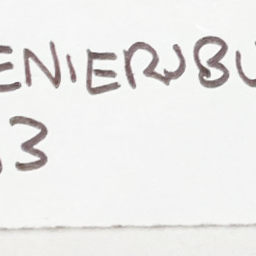 ENIERSBU
33